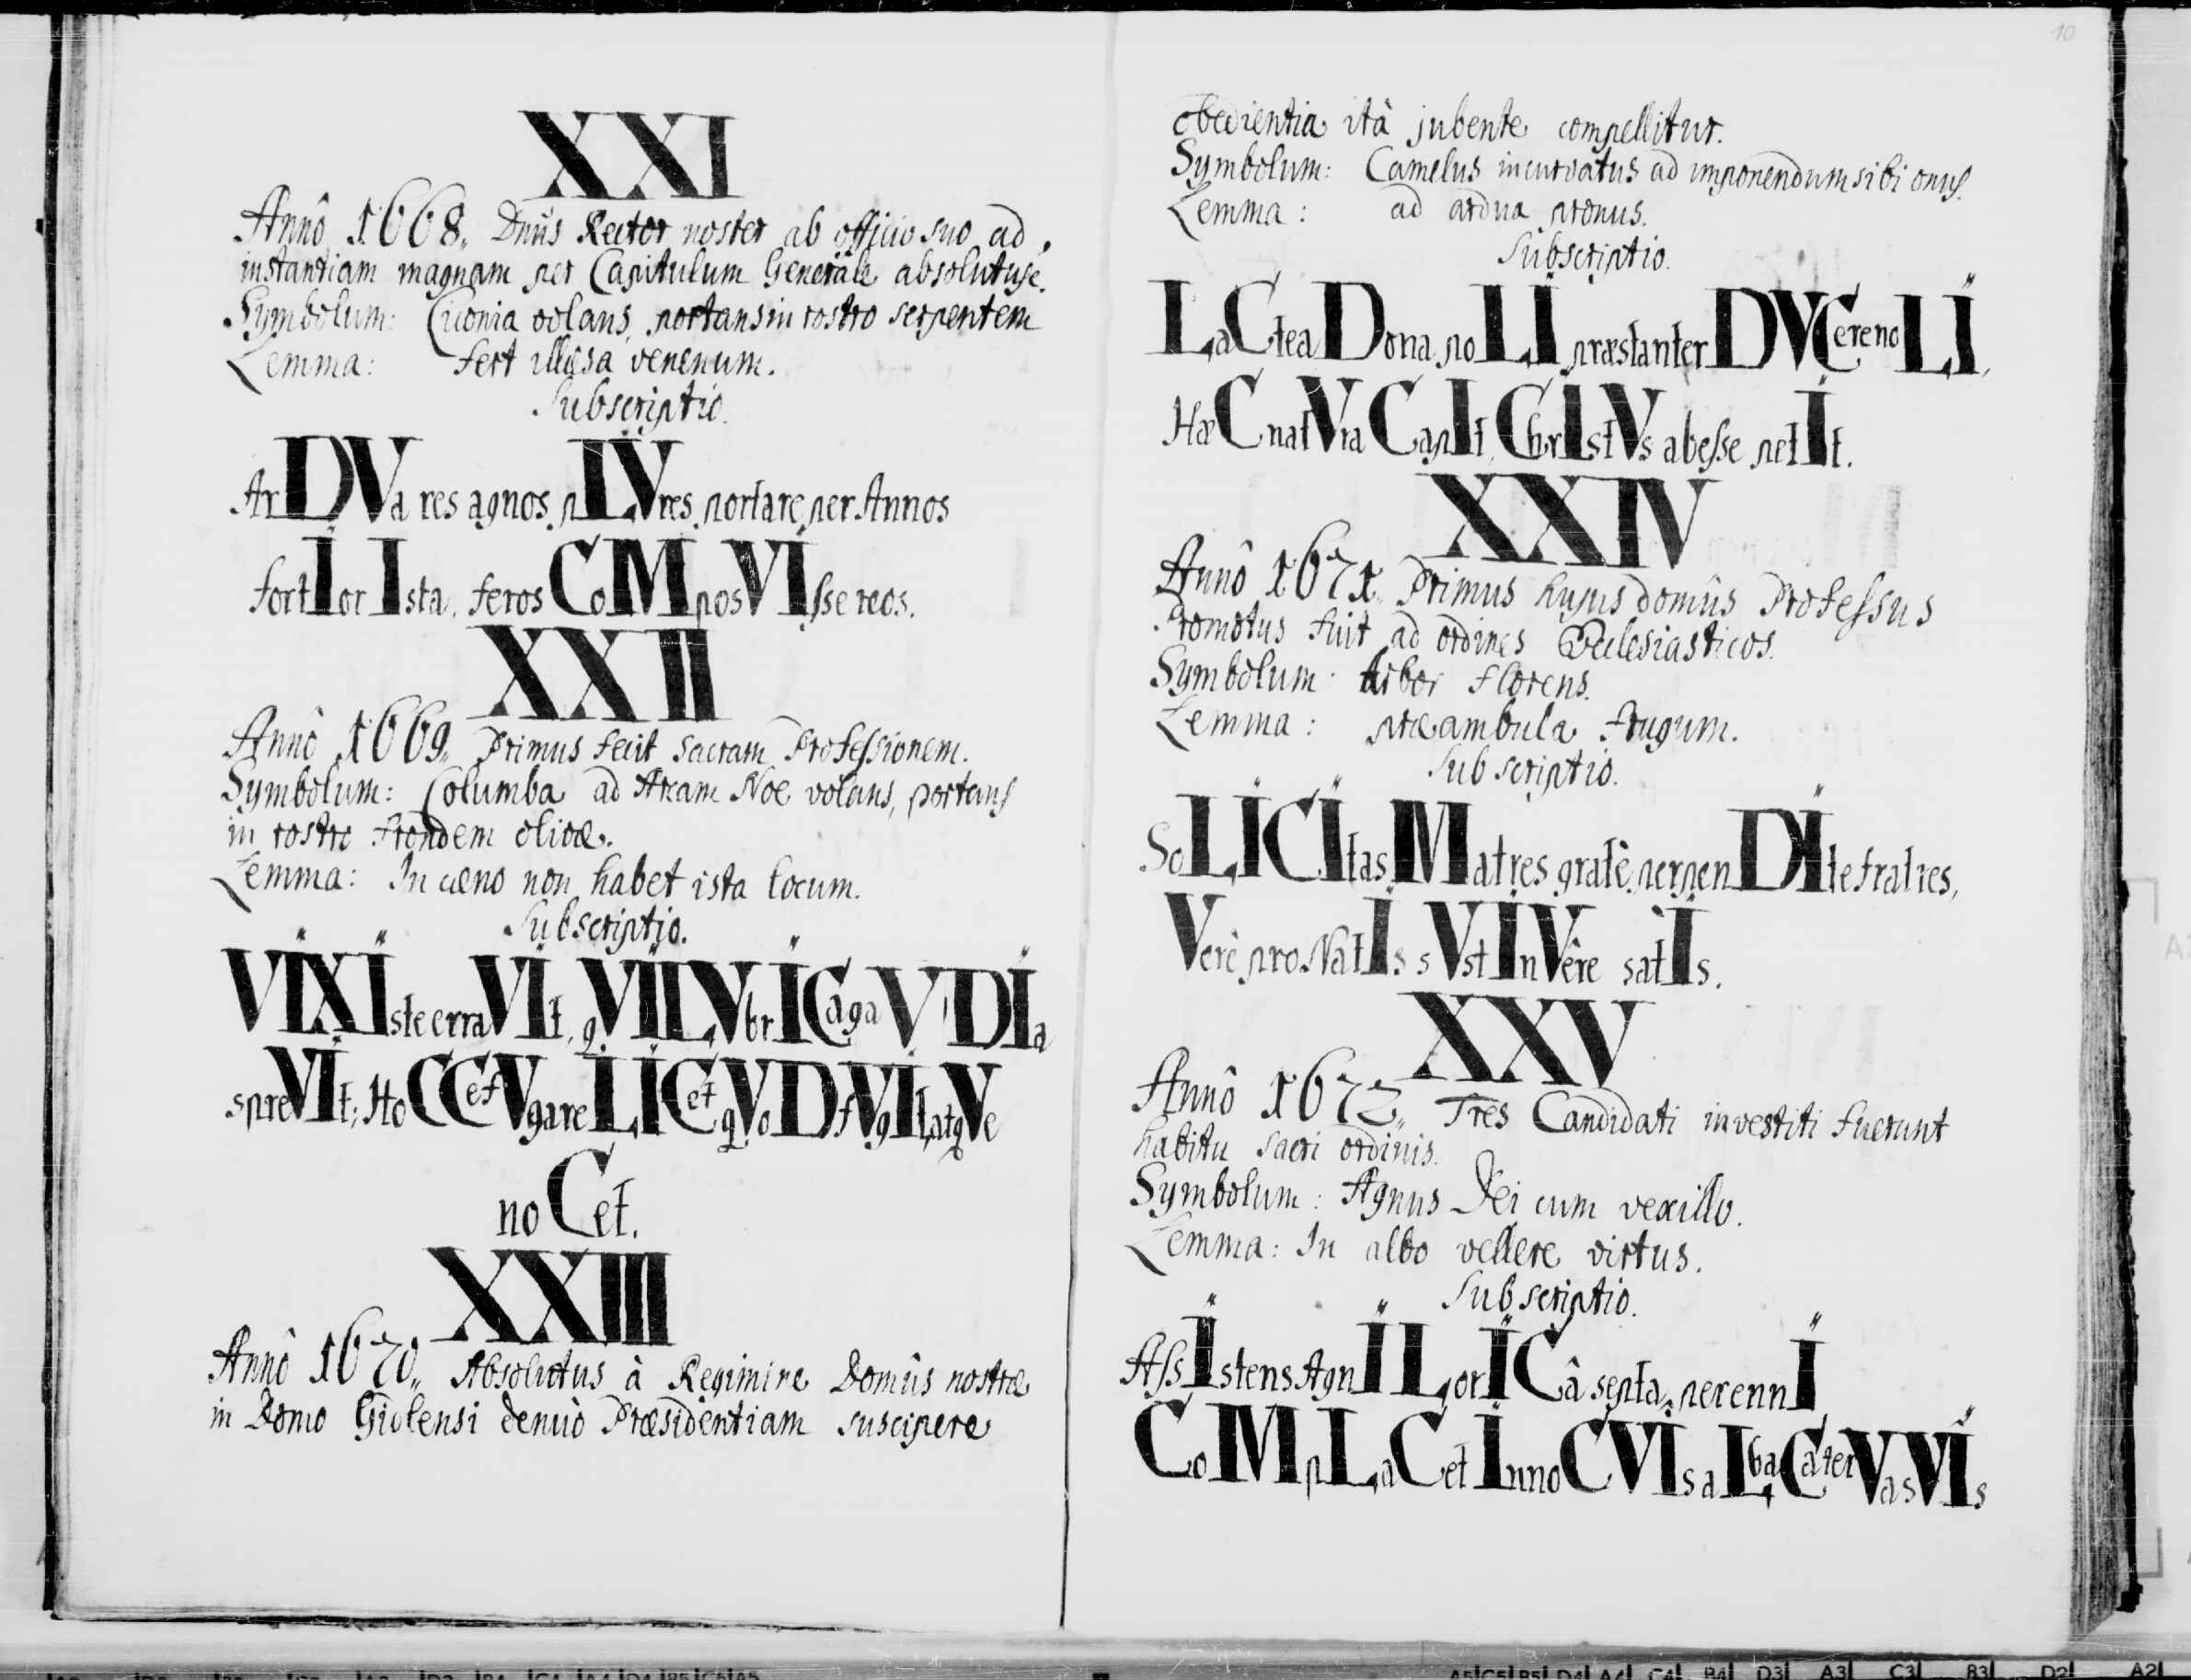 XXI
Annô 1668. Dnûs Rector noster ab officio suo ad
instantiam magnam per Capitulum Generale absolutus e.
Symbolum: Ciconia volans, portans in rostro serpentem
Lemma: fert illæsa venenum.
Subscriptio.
ArDVa res agnos pLVres portare per Annos
fortIor Ista, feros CoMposVIsse reos.
XXII
Annô 1669. Primus fecit sacram Professionem.
Symbolum: Columba ad Arcam Noe volans, portans
in rostro frondem olivæ.
Lemma: In cæno non habet ista locum.
Subscriptio.
VIX Iste erraVIt, qVI LVbrICa gaVDIa
spreVIt; HoC CetVgare LICet qVoD fVgIt atqVe
noCet.
XXIII
Annô 1670. Absolutus à Regimine Domûs nostræ
in Domo Giolensi denuò Præsidentiam suscipere
10
obedientia ità jubente compellitur.
Symbolum: Camelus incurvatus ad imponendum sibi onus.
Lemma: ad ardua pronus.
Subscriptio.
LaCtea Dona poLI præstanter DVCere noLI,
HæC natVra CapIt, ChrIstVs abesse petIt.
XXIV
Annô 1671. Primus hujus domûs Professus
Promotus fuit ad ordines Ecclesiasticos.
Symbolum: Arbor florens.
Lemma: præambula frugum.
Subscriptio.
SoLICItas Matres gratè perpenDIte fratres,
Verè pro NatIs sVst InVêre satIs.
XXV
Annô 1672. Tres Candidati investiti fuerunt
habitu sacri ordinis.
Symbolum: Agnus Dei cum vexillo.
Lemma: In albo vellere virtus.
Subscriptio.
AssIstens AgnI LorICâ septa perennI
CoMpLaCet InnoCVIs aLba CaterVa sVIs